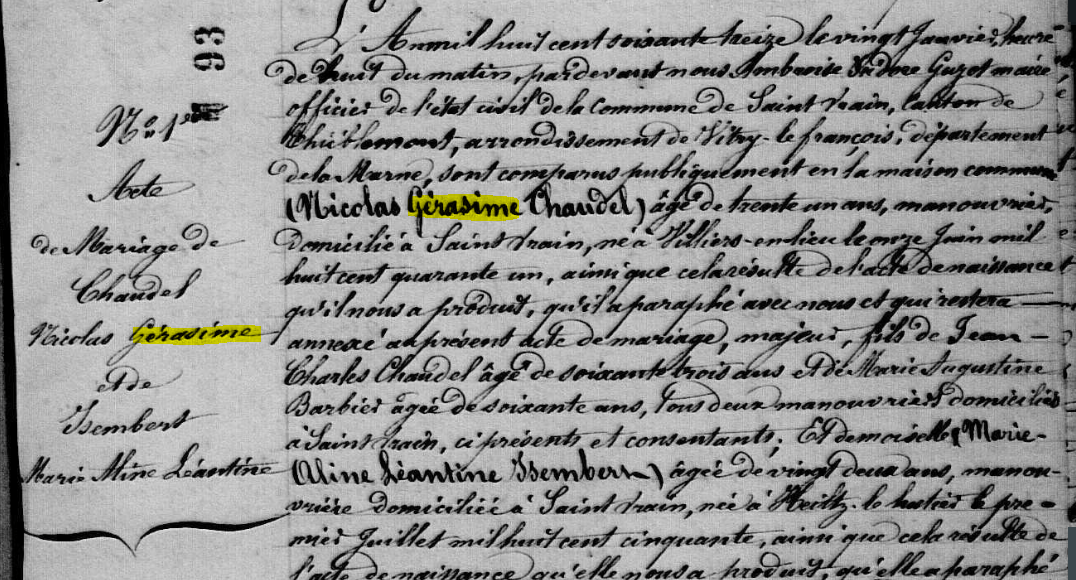 93
No. 1er
Acte
de Mariage de
Chaudel
Nicolas Gérasime
et de
Isembert
Marie Aline Léantine
L'An mil huit cent soixante treize le vingt Janvier, heure
de huit du matin, pardevant nous Ambroise Isidore Guyot maire
officier de l'état civil de la Commune de Saint vrain, Canton de
Thiéblemont, arrondissement de Vitry-le françois, département
de la Marne, sont comparus publiquement en la maison commune
(Nicolas Gérasime Chaudel) âgé de trente un ans, manouvrier,
domicilié à Saint vrain, né à Villiers-en lieu le onze Juin mil
huit cent quarante un, ainsi que cela résulte de l'acte de naissance
qu'il nous a produit, qu'il a paraphé avec nous et qui restera —
annexé au présent acte de mariage, majeur, fils de Jean —
Charles Chaudel âgé de soixante trois ans et de Marie Augustine
Barbier âgée de soixante ans, tous deux manouvriers domiciliés
à Saint vrain, ci présents et consentants; Et demoiselle (Marie-
Aline Léantine Isembert) âgée de vingt deux ans, manou-
vrière domiciliée à Saint vrain, née à Heiltz-le hutier le pre-
mier Juillet mil huit cent cinquante, ainsi que cela résulte de
l'acte de naissance qu'elle nous a produit, qu'elle a paraphé